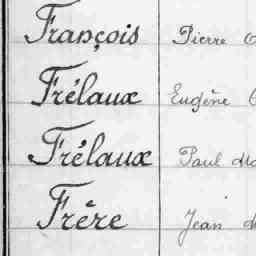 François Pierre
Frélaux Eugène
Frélaux Paul
Frère Jean